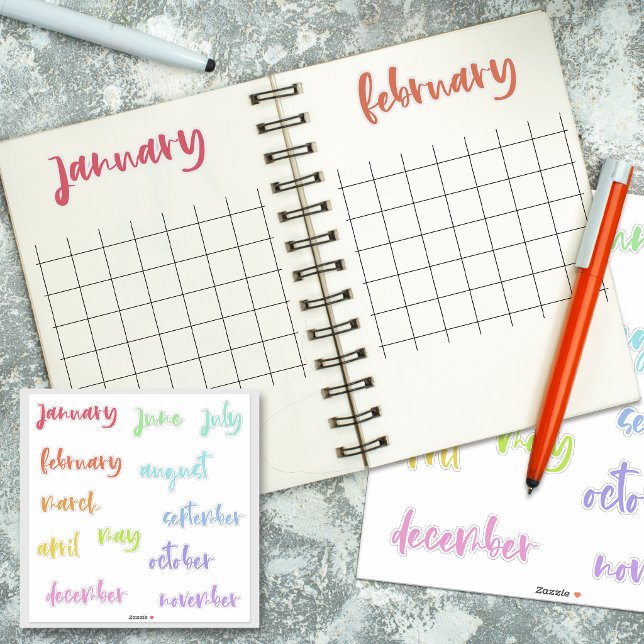 January
february
January june July
february august
march september
april may october
december november
Zazzle
jun
augu
se
april may
octo
december
nove
Zazzle